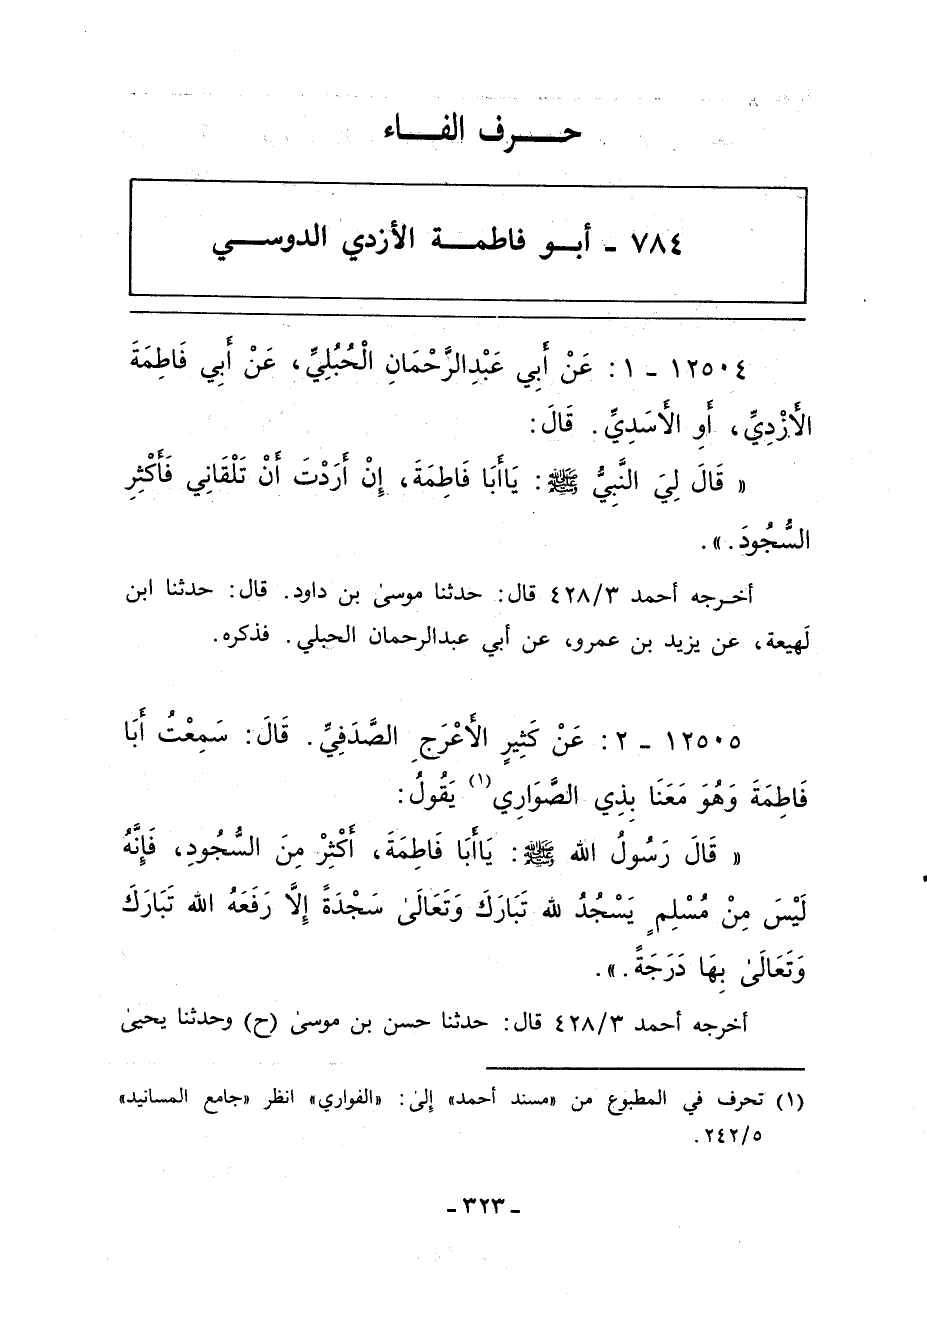 حـــرف الفـــاء
٧٨٤ - أبـو فاطمـة الأزدي الدوسـي
١٢٥٠٤ - ١: عَنْ أَبِي عَبْدِالرَّحْمَانِ الْحُبُلِيِّ، عَنْ أَبِي فَاطِمَةَ
الأَزْدِيِّ، أَوِ الأَسَدِيِّ. قَالَ:
« قَالَ لِيَ النَّبِيُّ ﷺ: يَاأَبَا فَاطِمَةَ، إِنْ أَرَدْتَ أَنْ تَلْقَانِي فَأَكْثِرِ
السُّجُودَ.».
أخـرجه أحمد ٤٢٨/٣ قال: حدثنا موسىٰ بن داود. قال: حدثنا ابن
لَهيعة، عن يزيد بن عمرو، عن أبي عبدالرحمان الحبلي. فذكره.
١٢٥٠٥ - ٢: عَنْ كَثِيرٍ الأَعْرَجِ الصَّدَفِيِّ. قَالَ: سَمِعْتُ أَبَا
فَاطِمَةَ وَهُوَ مَعَنَا بِذِي الصَّوَارِي(١) يَقُولُ:
« قَالَ رَسُولُ الله ﷺ: يَاأَبَا فَاطِمَةَ، أَكْثِرْ مِنَ السُّجُودِ، فَإِنَّهُ
لَيْسَ مِنْ مُسْلِمٍ يَسْجُدُ لله تَبَارَكَ وَتَعَالَىٰ سَجْدَةً إِلَّا رَفَعَهُ الله تَبَارَكَ
وَتَعَالَىٰ بِهَا دَرَجَةً.».
أخرجه أحمد ٤٢٨/٣ قال: حدثنا حسن بن موسىٰ (ح) وحدثنا يحيىٰ
(١) تحرف في المطبوع من «مسند أحمد» إلىٰ: «الفواري» انظر «جامع المسانيد»
٢٤٢/٥.
- ٣٢٣ -